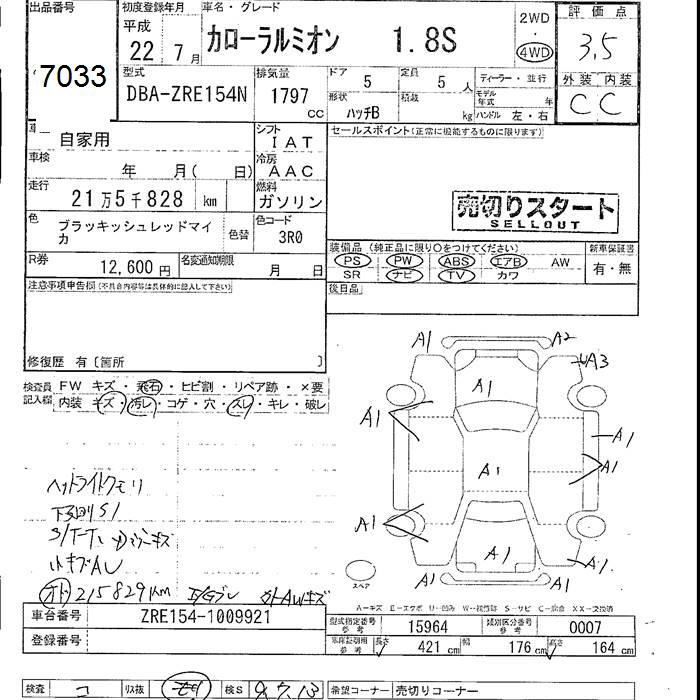 出品番号
7033
初度登録年月
平成
22年7月
車名・グレード
カローラルミオン 1.8S
2WD
・
4WD
評価点
3.5
外装 内装
C C
型式
DBA-ZRE154N
排気量
1797
cc
ドア 5
定員 5 人
形状 ハッチB
積載 kg
ディーラー・並行
モデル年式 年
ハンドル 左・右
自家用
シフト
IAT
車検
年 月( 日)
冷房
AAC
走行
21万5千828 km
燃料
ガソリン
色
ブラッキッシュレッドマイカ
色替
色コード
3R0
R券
12,600 円
名変通知期限
月 日
セールスポイント(正常に機能するものに限ります)
売切りスタート
SELLOUT
装備品 (純正品に限り○をつけてください)
PS PW ABS エアB AW
SR ナビ TV カワ
新車保証書
有・無
後日品
注意事項申告欄(不具合内容等は具体的に記入して下さい)
修復歴 有〔箇所 〕
検査員記入欄
FW キズ・飛石・ヒビ割・リペア跡・×要
内装 キズ・汚レ・コゲ・穴・スレ・キレ・破レ
ヘッドライトクモリ
下廻りS1
小キズAU
オド 215829km E/Gブレ 外AWキズ
A1 A2
A3
A1
A1 A1
A1 A1
A1
A1 A1
A1 A1
スペア
A－キズ E－エクボ U－凹み W－補修跡 S－サビ C－腐食 XX－交換済
車台番号
ZRE154-1009921
登録番号
型式指定番号 参考
15964
類別区分番号 参考
0007
車庫証明用 参考
長さ 421 cm
幅 176 cm
高さ 164 cm
検査
リス抜
検S
9.7.13
希望コーナー
売切りコーナー